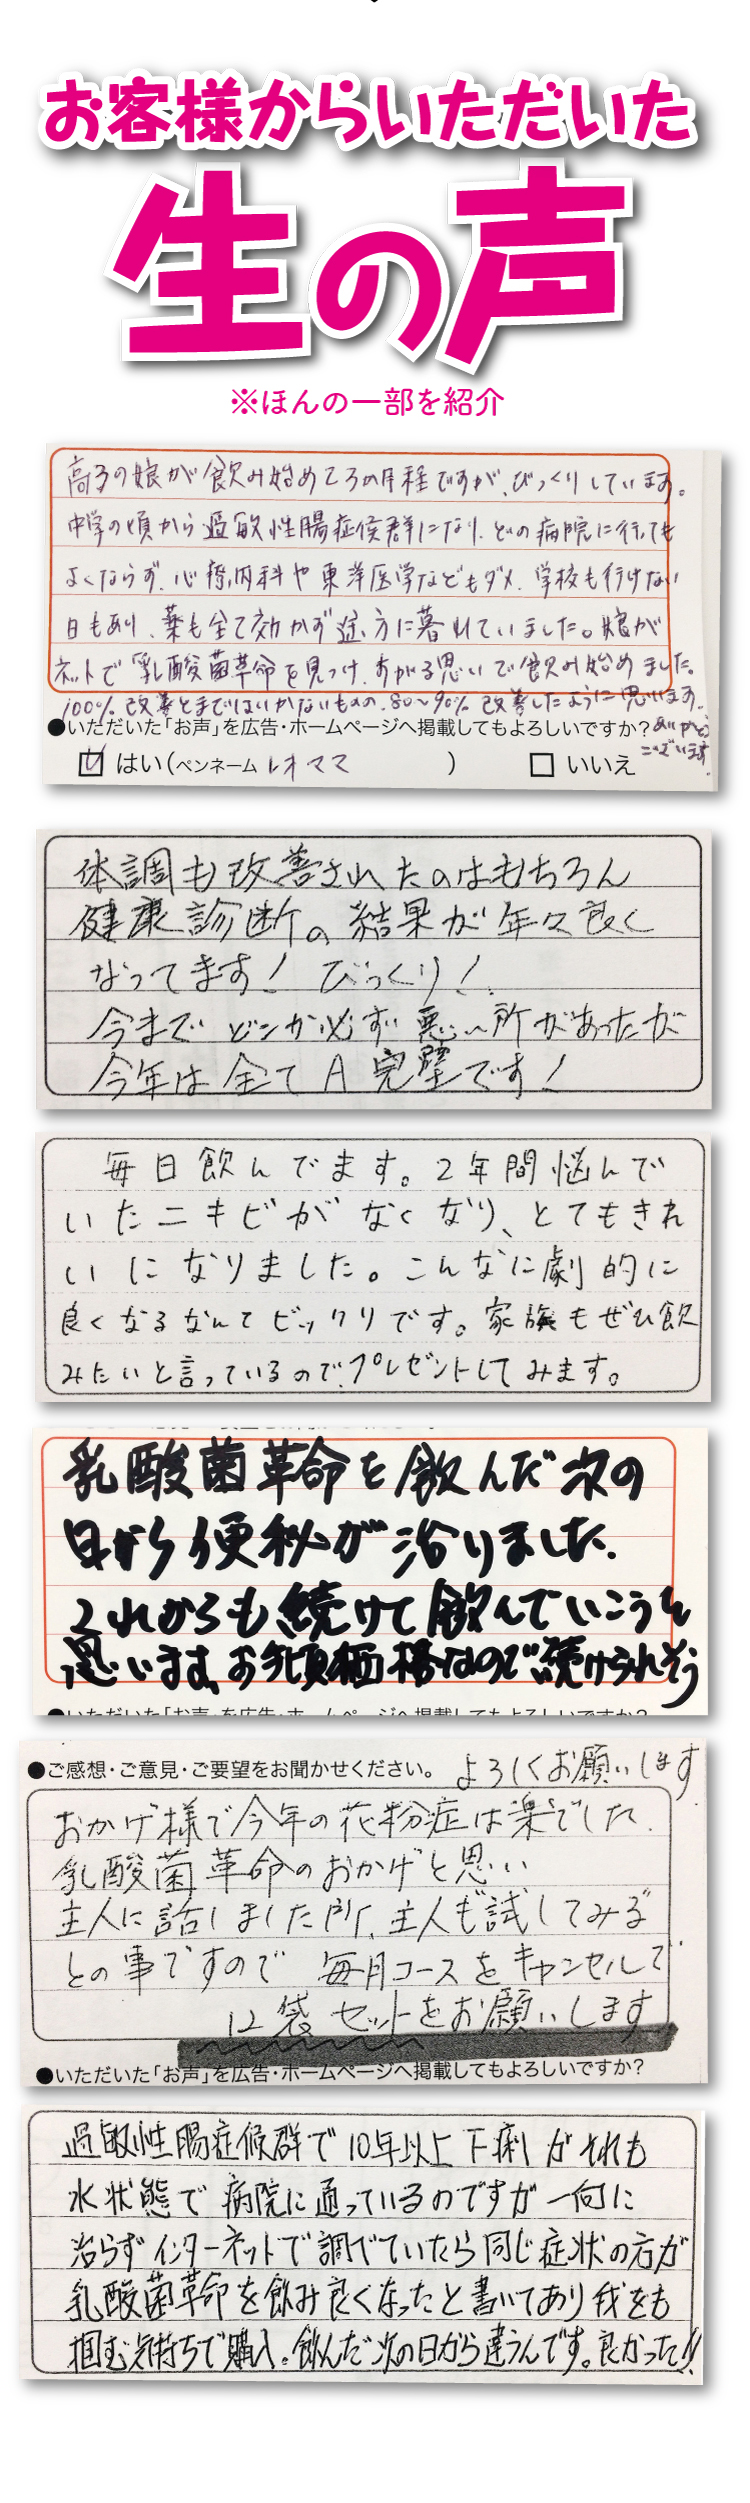 お客様からいただいた
生の声
※ほんの一部を紹介
高3の娘が飲み始めて3ヵ月程ですが、びっくりしています。
中学の頃から過敏性腸症候群になり、どの病院に行っても
よくならず、心療内科や東洋医学などもダメ、学校も行けない
日もあり、薬も全て効かず途方に暮れていました。娘が
ネットで乳酸菌革命を見つけ、すがる思いで飲み始めました。
100%改善とまではいかないものの、80〜90%改善したように思います。
●いただいた「お声」を広告・ホームページへ掲載してもよろしいですか?
ありがとう
ございます。
はい(ペンネーム レオママ ) いいえ
体調も改善されたのはもちろん
健康診断の結果が年々良く
なってます!びっくり!
今まで どこか必ず悪い所があったが
今年は全てA 完璧です!
毎日飲んでます。2年間悩んで
いたニキビがなくなり、とてもきれ
いになりました。こんなに劇的に
良くなるなんてビックリです。家族もぜひ飲
みたいと言っているので、プレゼントしてみます。
乳酸菌革命を飲んだ次の
日から便秘が治りました。
これからも続けて飲んでいこうと
思います、お手頃価格なので続けられそう
●いただいた「お声」を広告・ホームページへ掲載してもよろしいですか?
●ご感想・ご意見・ご要望をお聞かせください。 よろしくお願いします
おかげ様で今年の花粉症は楽でした。
乳酸菌革命のおかげと思い
主人に話しました所、主人も試してみる
との事ですので 毎月コースをキャンセルして
12袋セットをお願いします
●いただいた「お声」を広告・ホームページへ掲載してもよろしいですか?
過敏性腸症候群で10年以上下痢がそれも
水状態で病院に通っているのですが一向に
治らずインターネットで調べていたら同じ症状の方が
乳酸菌革命を飲み良くなったと書いてあり我をも
掴む気持ちで購入。飲んだ次の日から違うんです。良かった!!